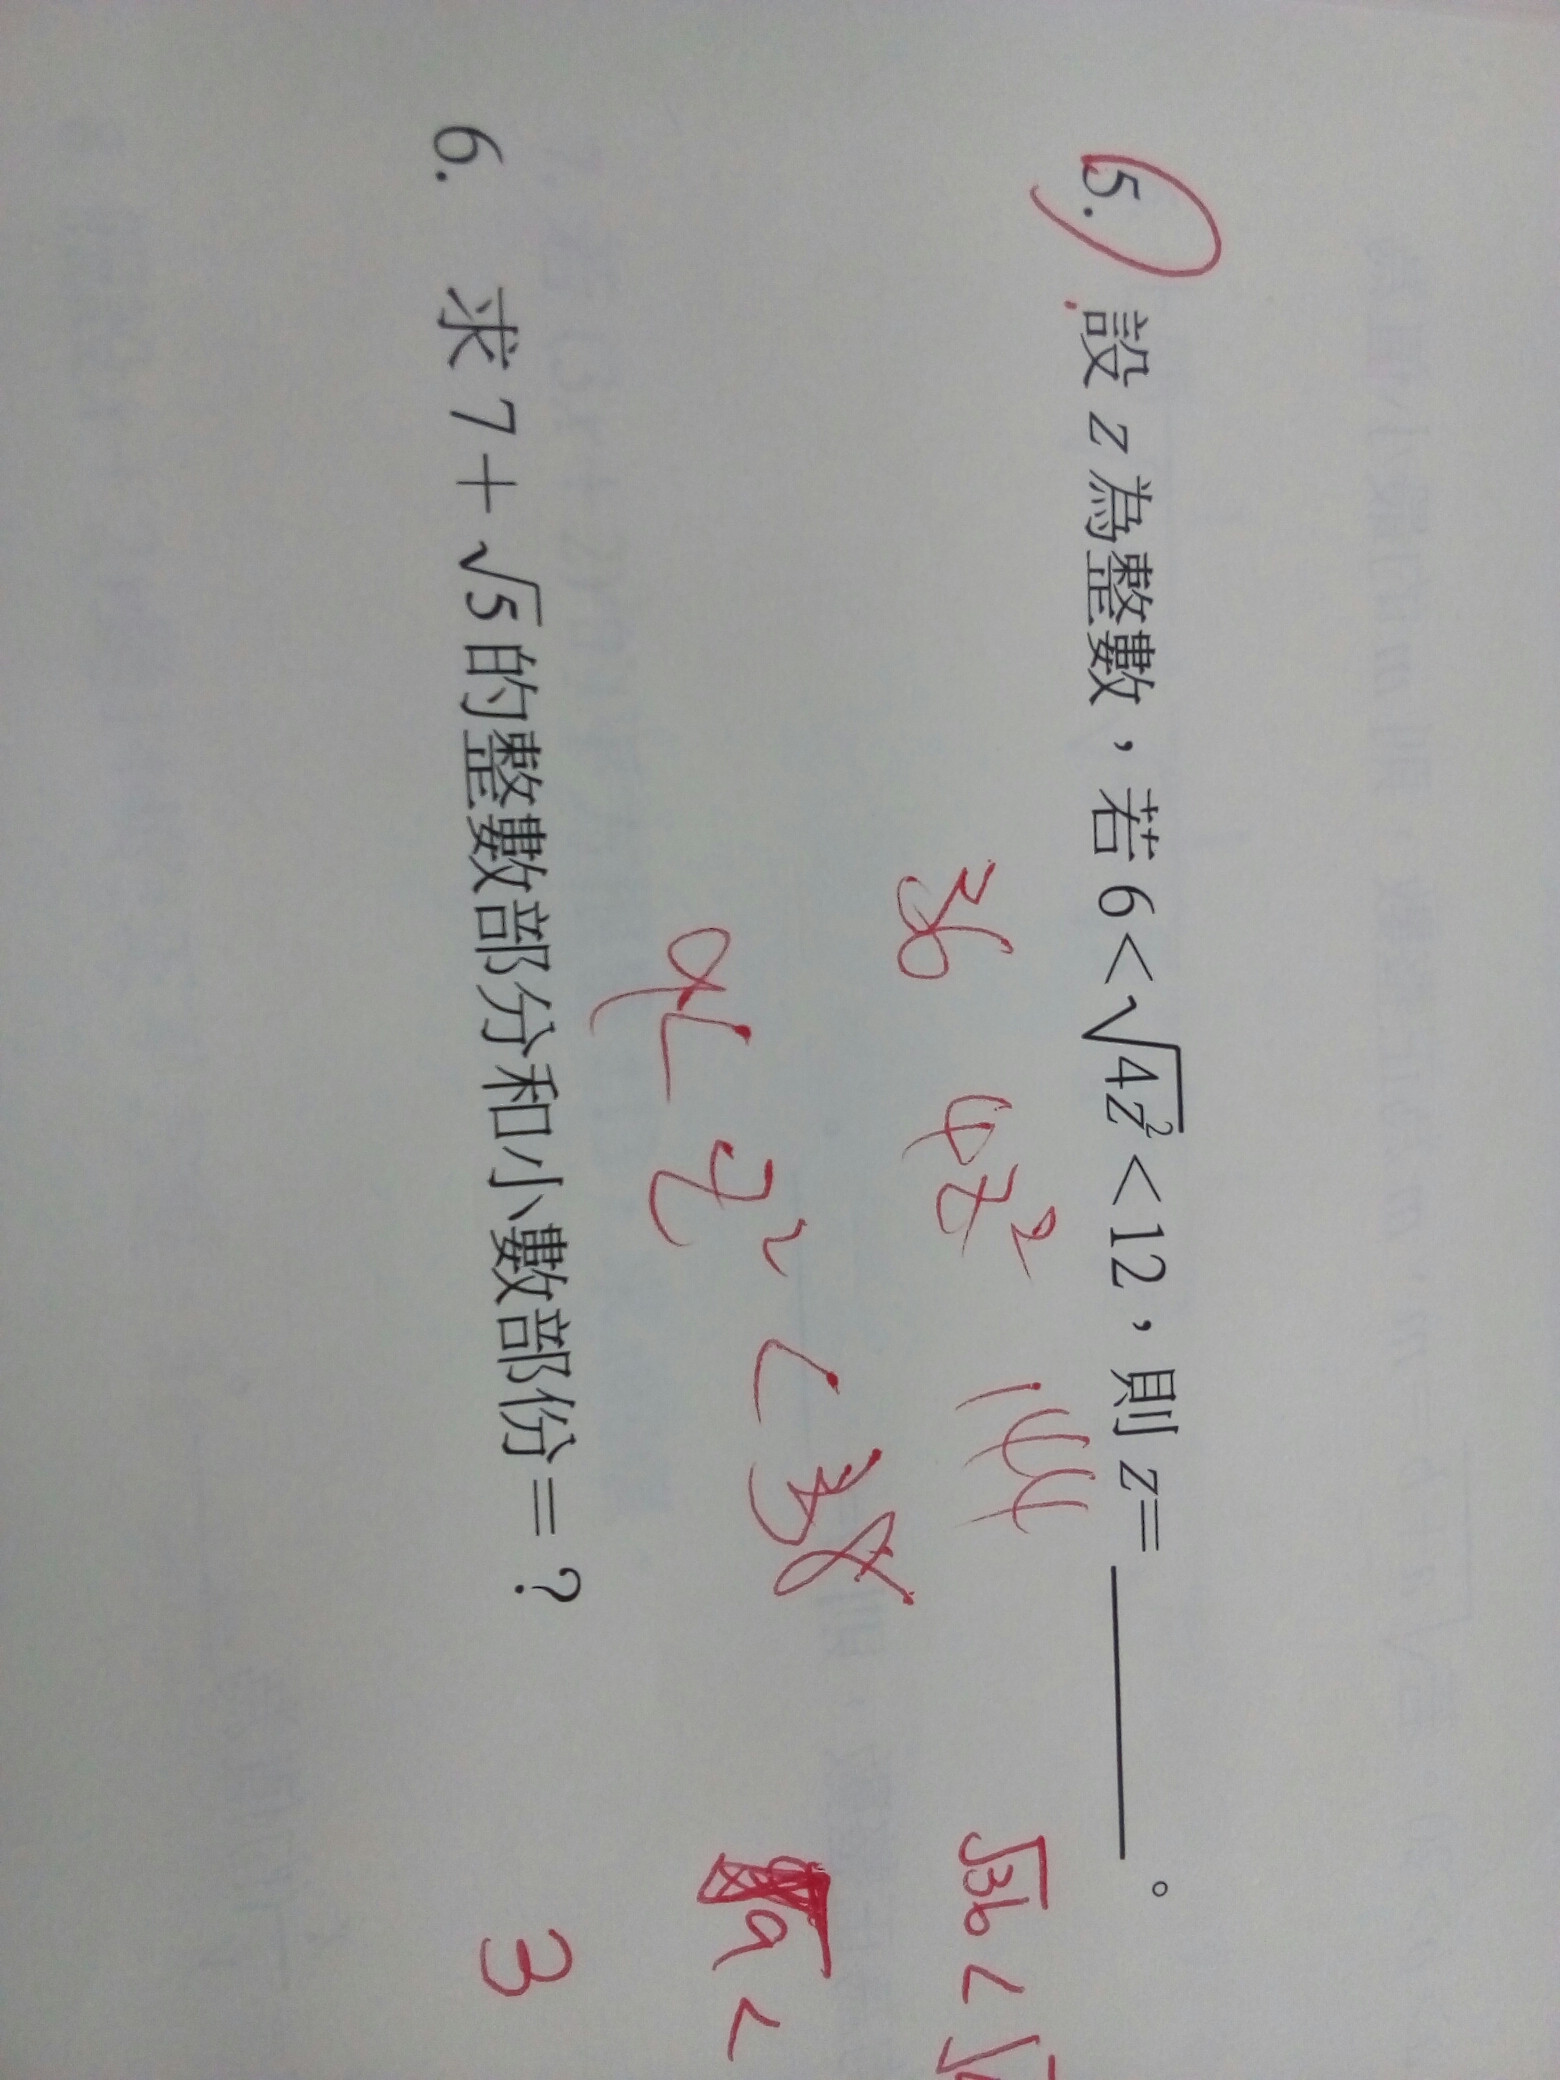 5. 設 z 為整數，若 6<√4z²<12，則 z=＿＿＿＿。
36 4z² 144
√36<√
9< z² <38
√9 <
6. 求 7+√5 的整數部分和小數部份=？
3